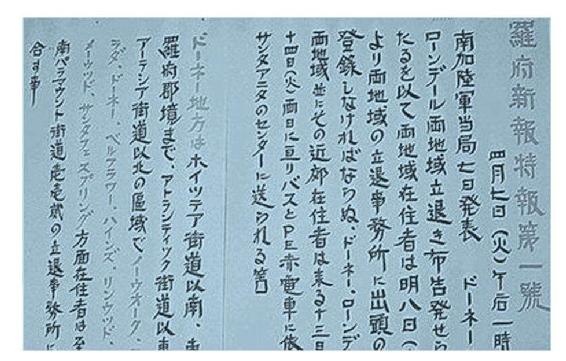 羅府新報特報第一號
四月七日(火)午后一時
南加陸軍当局七日発表 ドーネー
ローンデール両地域立退き布告発せら
たるを以て両地域在住者は明八日(
より両地域の立退事務所に出頭の
登録しなければならぬ、ドーネー、ローンデ
両地域並にその近郊在住者は来る十三日
十四日(火)両日に亘りバスとPE赤電車に依
サンタアニタのセンターに送られる筈
ドーネー地方はホイツテア街道以南、東
羅府郡境まで、アトランティック街道以東
アーテシア街道以北の區域でノーウオーク、
ラダ、ドーネー、ベルフラワー、ハインズ、リンウッド、
メーウッド、サンタフェスプリング方面在住者は至
南パラマウント街道壱壱弐の立退事務所に
合す事